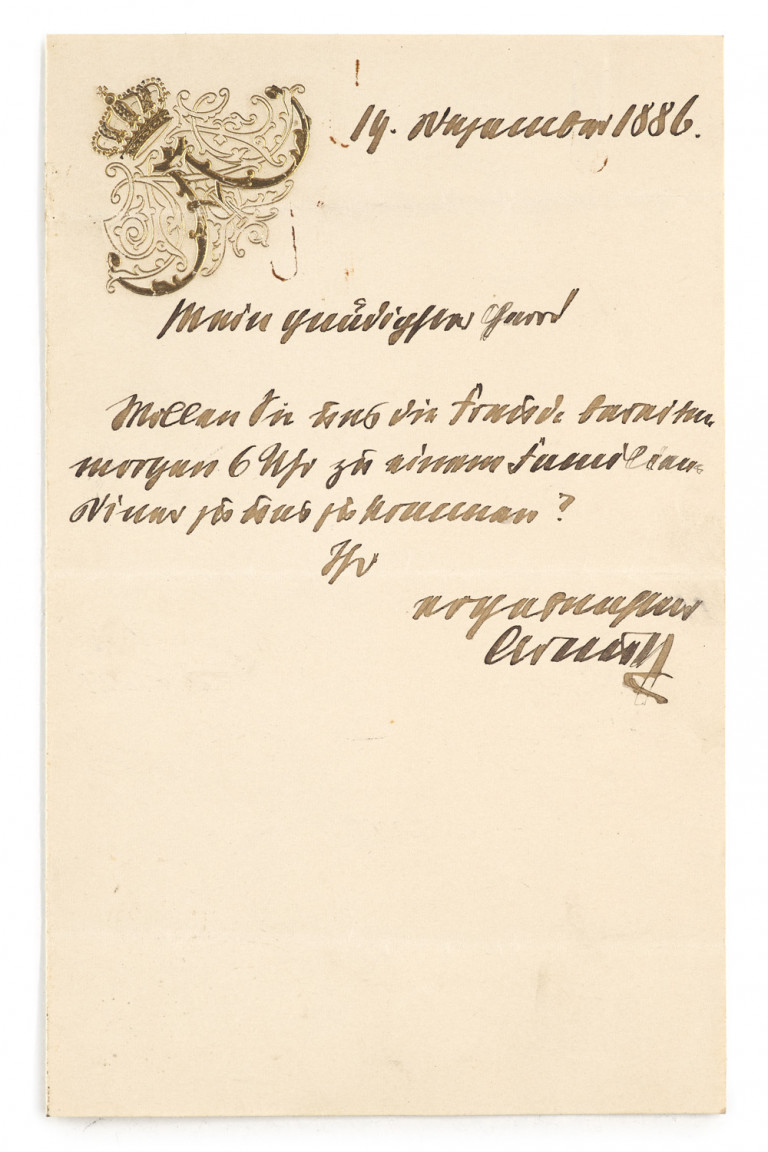 19. Dezember 1886.
Mein gnädigster Herr!
Wollen Sie uns die Freude bereiten
morgen 6 Uhr zu einem Familien-
Diner zu uns zu kommen?
Ihr
ergebenster